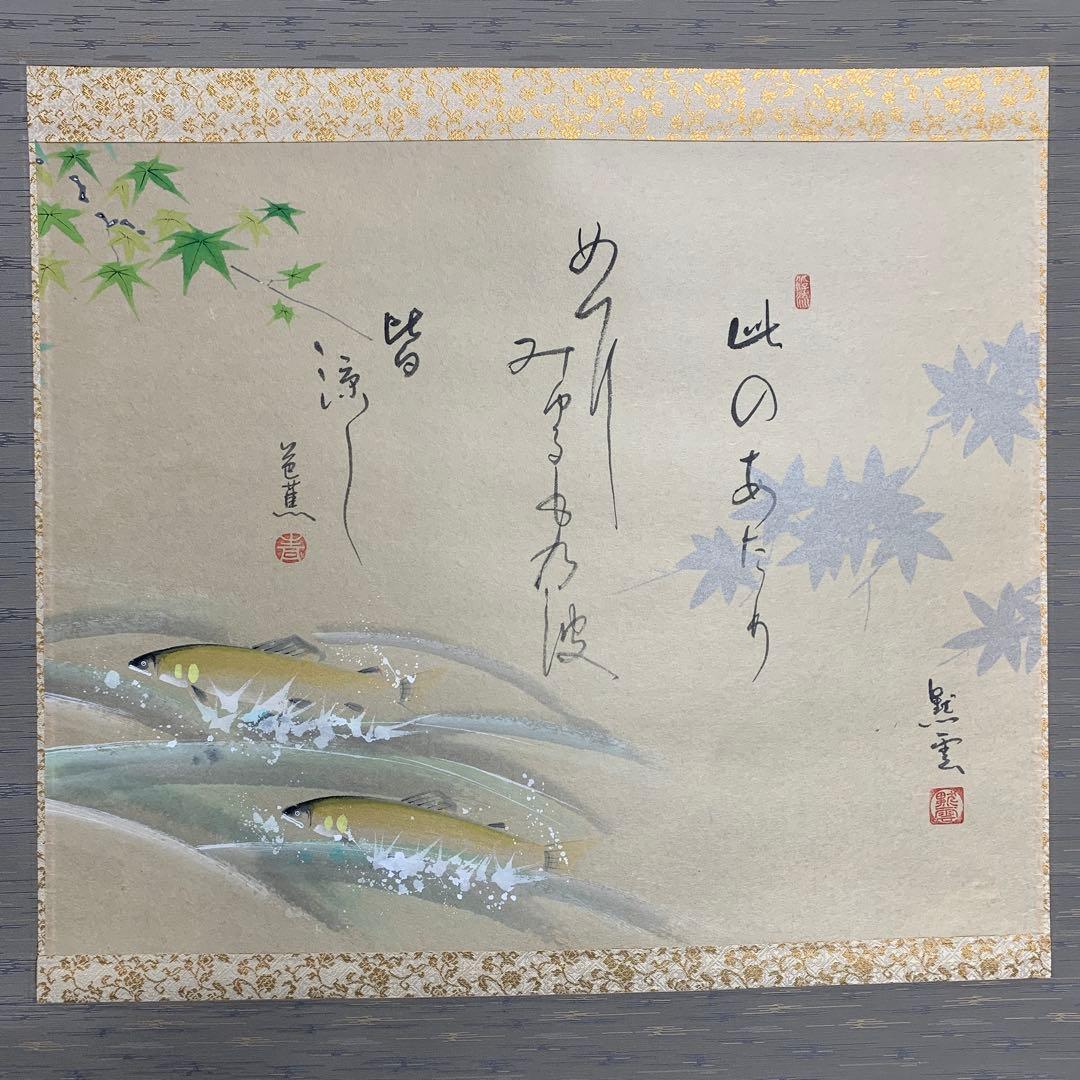 此のあたり
めに
みゆるもの波
皆
涼し
芭蕉
黙雲